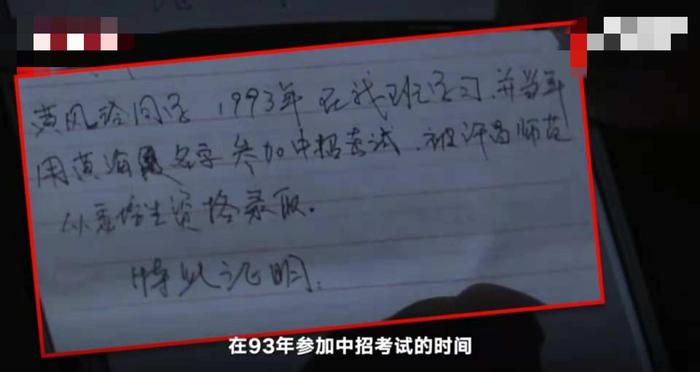 黄风玲同学 1993年在我班学习,并当年
用黄海 名字参加中招考试,被许昌师范
以委培生资格录取。
特此证明:
在93年参加中招考试的时间